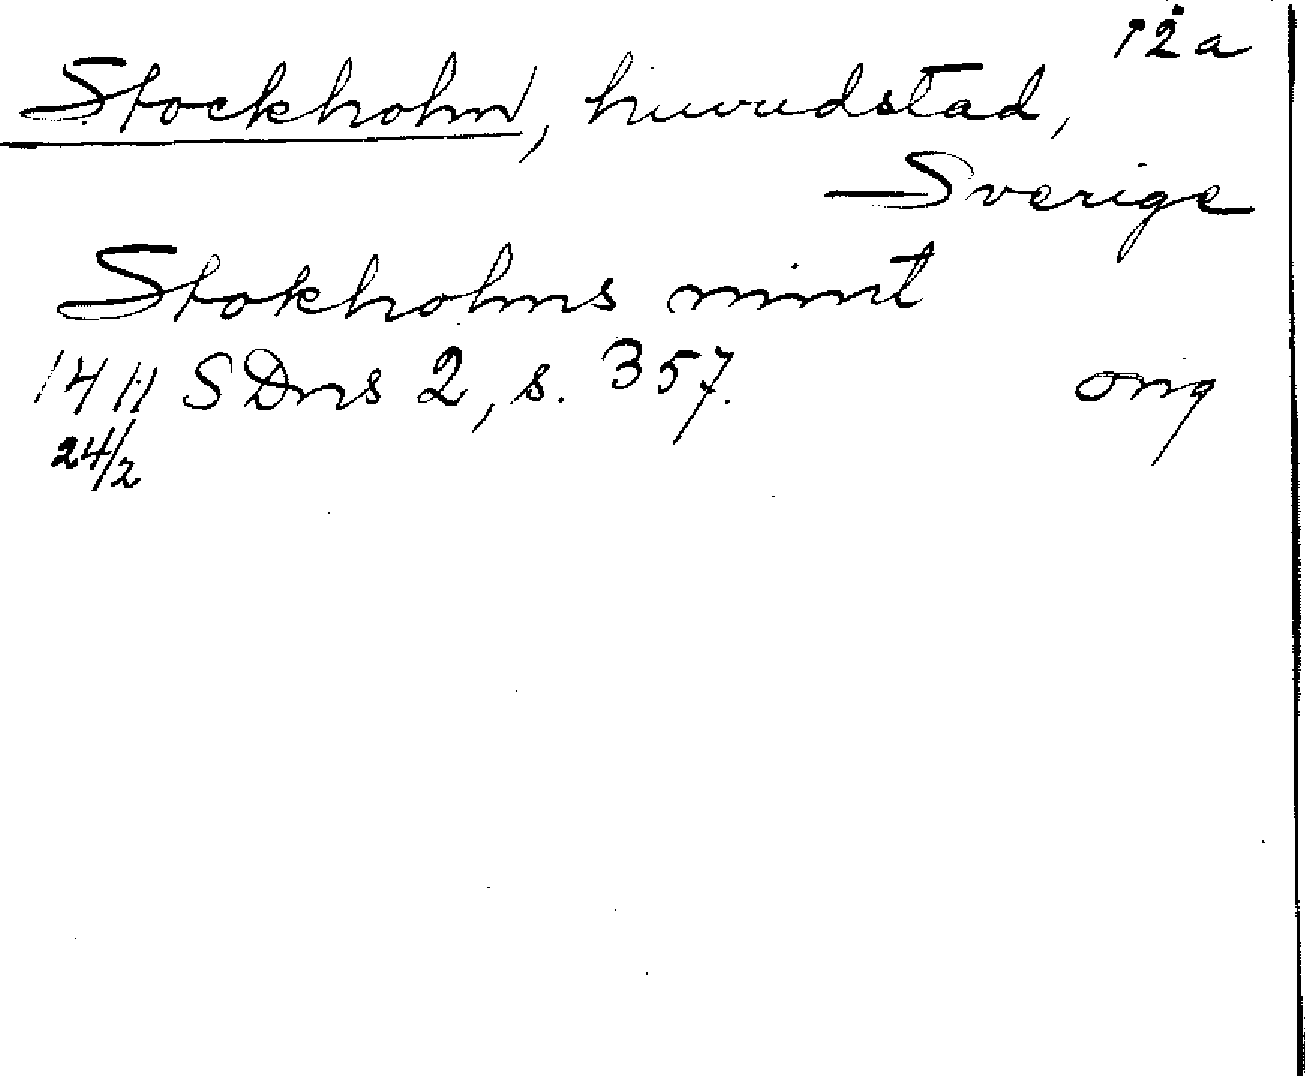 12a
Stockholm, huvudstad,
Sverige
Stokholms mint
1411 SDns 2, s. 357.
orig
24/2